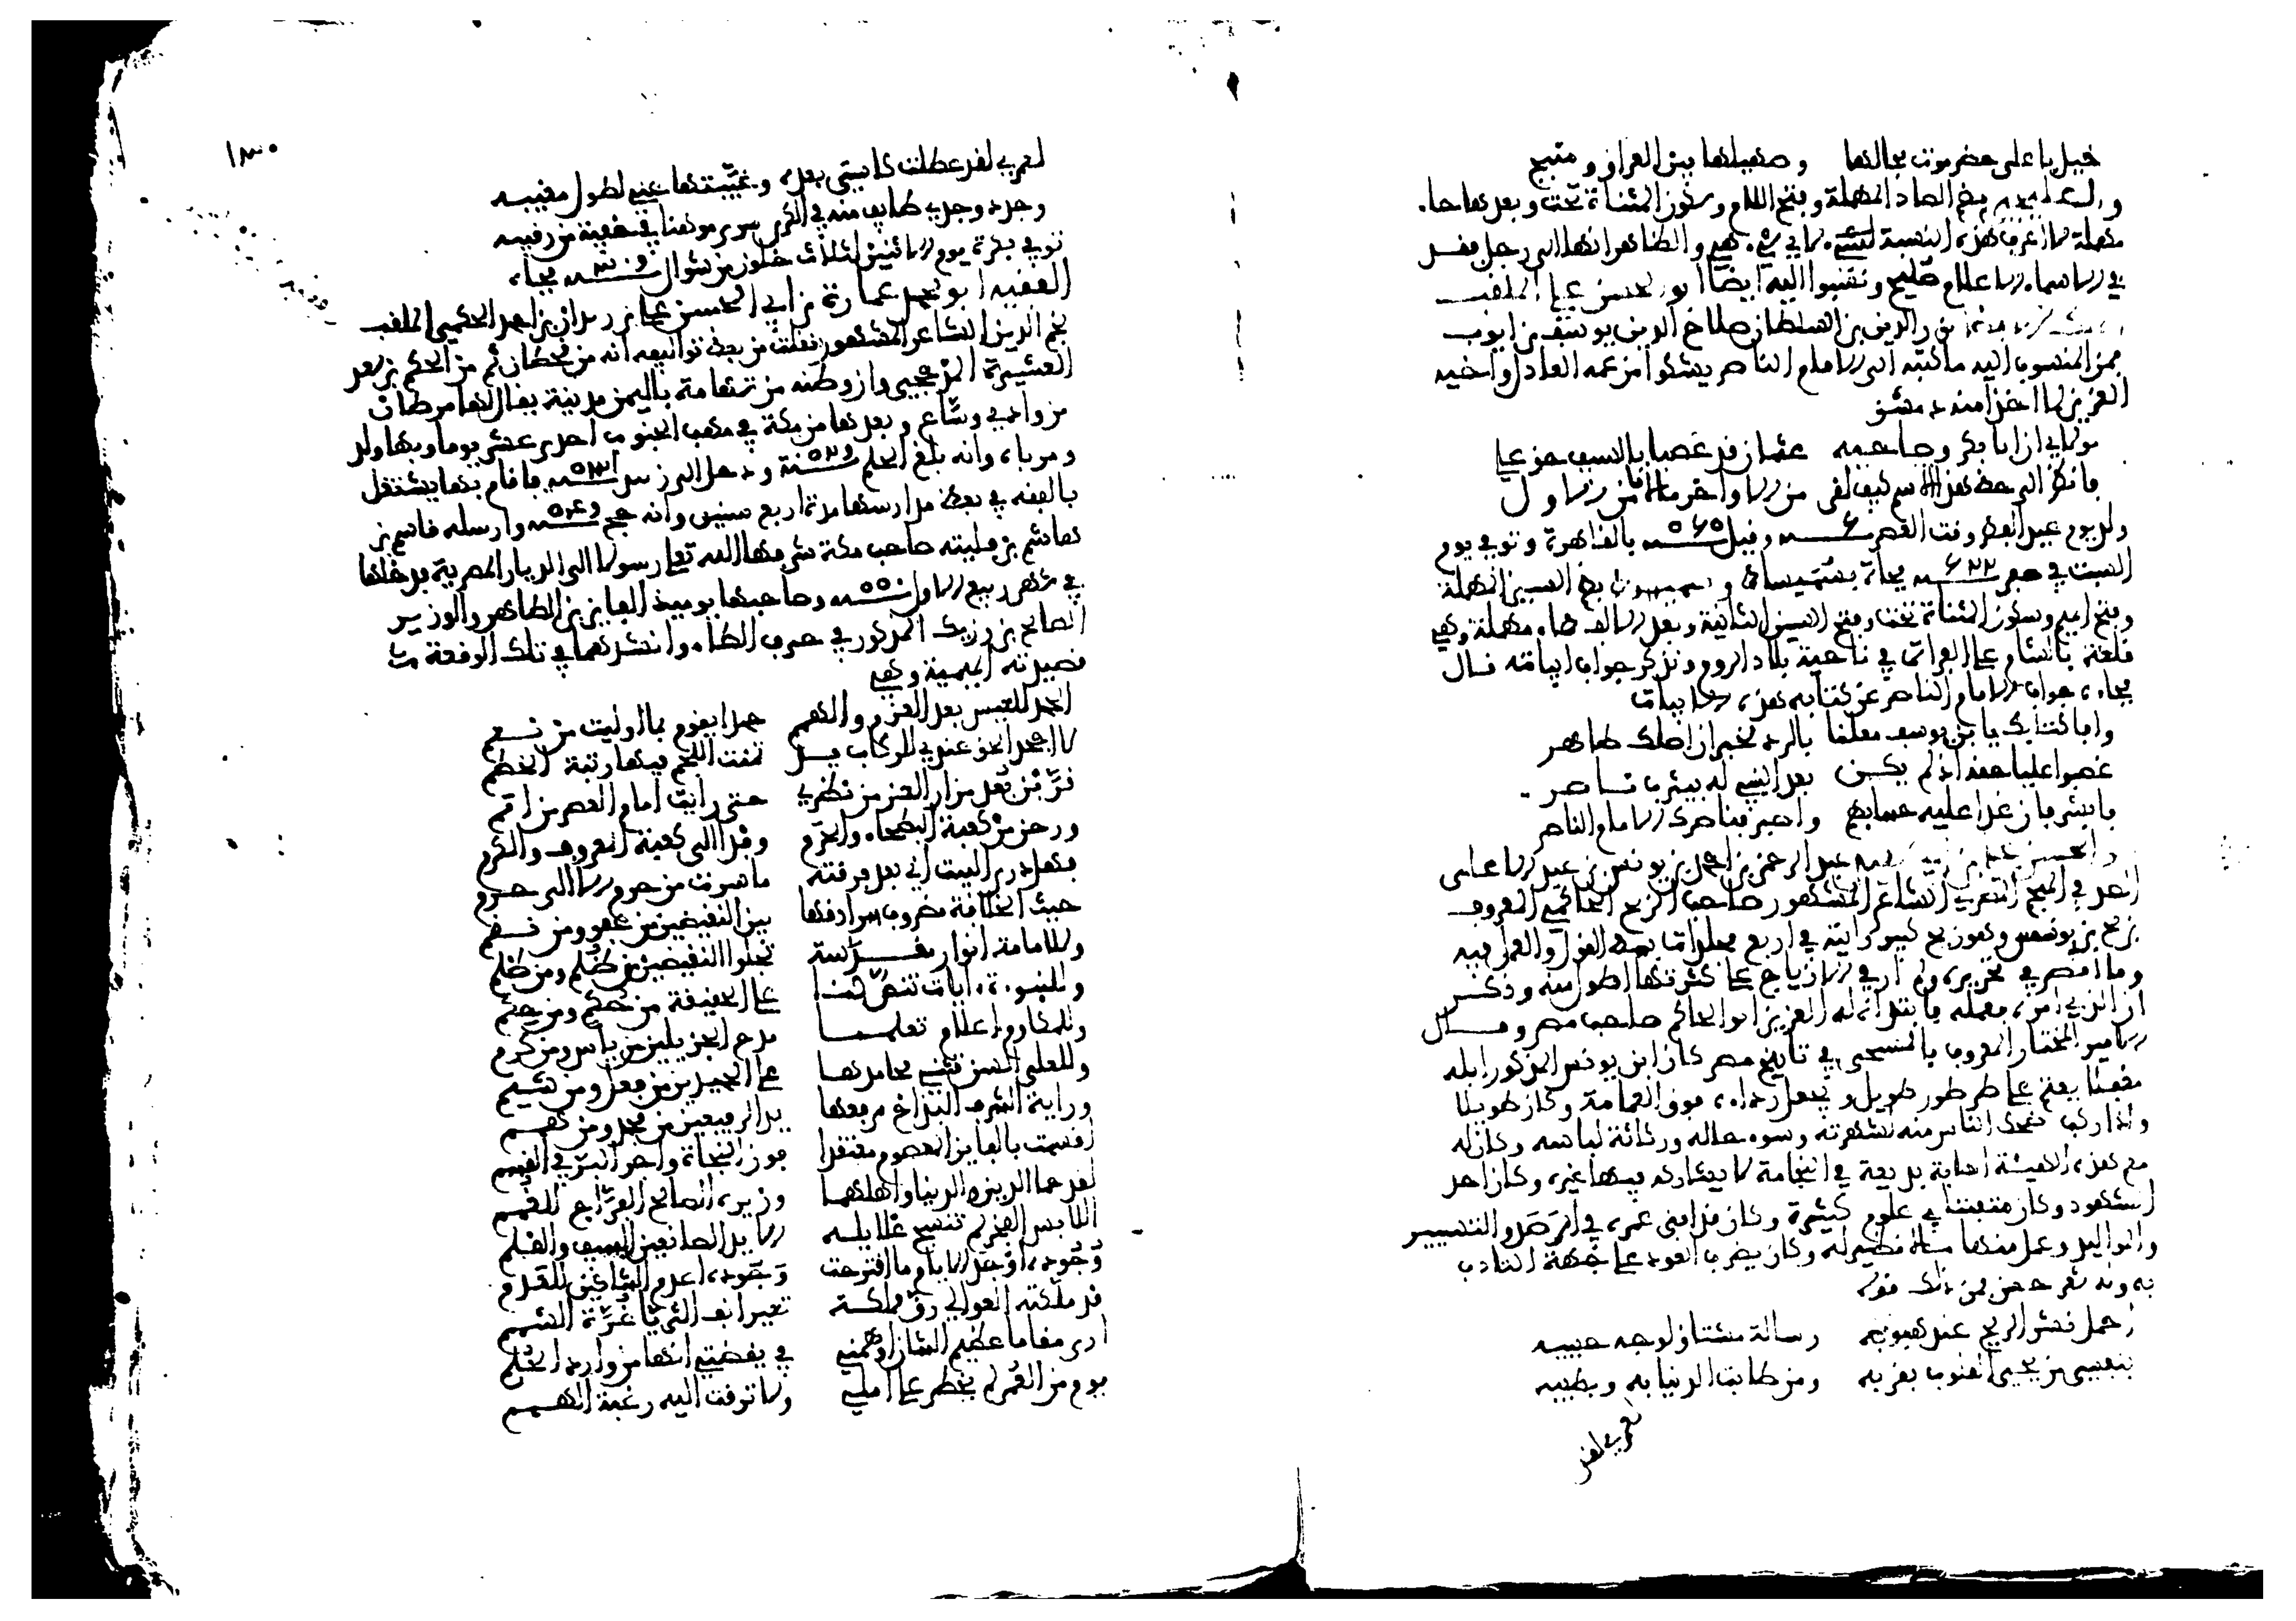 خيل باعلى حضرموت مجالها وصهيلها بين العراق ومنبج
والصليحي بضم الصاد المهملة وفتح اللام وسكون المثناة تحت وبعدها حاء
مهملة لا اعرف هذه النسبة لشيء لاي شيء هي والظاهر انها الى رجل فقد
في الاسماء الاعلام صليح ونسبوا اليه ايضا ابو الحسن علي الملقب
نور الدين بن السلطان صلاح الدين يوسف بن ايوب
فمن المنسوب اليه ما كتبه الى الامام الناصر يشكوا من عمه العادل واخيه
العزيز لما اخذا منه دمشق
مولاي ان ابا بكر وصاحبه عثمان قد غصبا بالسيف حق علي
فانظر الى حظ هذا الاسم كيف لقى من الاواخر ما لاقا من الاول
ولد يوم عيد الفطر وقت العصر وقيل بالقاهرة وتوفي يوم
السبت في صفر ٦٢٢ فجاة بسميساط وسميساط بضم السين المهملة
وفتح الميم وسكون المثناة تحت وفتح السين الثانية وبعد الالف طاء مهملة وهي
قلعة بالشام على الفرات في ناحية بلاد الروم ونذكر جواب ابياته قال
فجاءه جواب الامام الناصر عن كتابه هذه الابيات
وافا كتابك يا بن يوسف معلنا بالرد يخبر ان اصلك طاهر
غصبوا عليا حقه اذ لم يكن بعد النبي له بيثرب ناصر
فابشر فان غدا عليه حسابهم واصبر فناصرك الامام الناصر
ابو الحسن علي بن ابي سعيد عبد الرحمن بن احمد بن يونس بن عبد الاعلى
الصدفي المنجم المصري الشاعر المشهور صاحب الزيج الحاكمي المعروف
بزيج بن يونس وهو زيج كبير رايته في اربع مجلدات بسط القول والعمل فيه
وما اقصر في تحريره ولم ار في الازياج على كثرتها اطول منه وذكر
ان الذي امره بعمله وابتداه له العزيز ابو الحاكم صاحب مصر وقال
الامير المختار المعروف بالمسبحي في تاريخ مصر كان ابن يونس المذكور ابله
مغفلا يعتم على طرطور طويل ويجعل رداءه فوق العمامة وكان طويلا
واذا ركب ضحك الناس منه لشهرته وسوء حاله ورثاثة لباسه وكان له
مع هذه الهيئة اصابة بديعة في النجامة لا يشاركه فيها غيره وكان احد
الشهود وكان متفننا في علوم كثيرة وكان قد افنى عمره في الرصد والتسيير
والمواليد وعمل منها ما لا نظير له وكان يضرب العود على جهة التادب
به وله شعر حسن فمن ذلك قوله
احمل نشر الريح عند هبوبه رسالة مشتاق لوجه حبيبه
بنفسي من تحيى القلوب بقربه ومن طابت الدنيا به وبطيبه
لعمري لقد
١٣٠
لعمري لقد عطلت كاسي بعده وغيبتها عني لطول مغيبه
وجدد وجدي طايف منه في الكرى سرى موهنا في خفية من رقيبه
توفي بكرة يوم الاثنين لثلاث خلون من شوال فجاءة
الفقيه ابو محمد عمارة بن ابي الحسن علي بن زيدان بن احمد الحكمي الملقب
نجم الدين الشاعر المشهور نقلت من بعض تواليفه انه من قحطان ثم من الحكم بن سعد
العشيرة المذحجي وان وطنه من تهامة باليمن مدينة يقال لها مرطان
من وادي وساع وبعدها من مكة في مهب الجنوب احدى عشر يوما وبها ولد
ومرباه وانه بلغ الحلم ودخل الى زبيد فاقام بها يشتغل
بالفقه في بعض مدارسها مدة اربع سنين وانه حج وارسله قاسم بن
هاشم بن فليته صاحب مكة شرفها الله تعلى رسولا الى الديار المصرية فدخلها
في شهر ربيع الاول وصاحبها يوميذ الفايز بن الظاهر والوزير
الصالح بن رزيك المذكور في حرف الطاء وانشدهما في تلك الوقعة
قصيدته الميمية وهي
الحمد للعيس بعد العزم والهمم حمدا يقوم بما اوليت من نعم
لا اجحد الحق عندي للركاب يد تمنت اللجم فيها رتبة الخطم
قربن بعد مزار العز من نظري حتى رايت امام العصر من امم
ورحن من كعبة البطحاء والحرم وفدا الى كعبة المعروف والكرم
فهل درى البيت اني بعد فرقته ما سرت من حرم الا الى حرم
حيث الخلافة مضروب سرادقها بين النقيضين من عفو ومن نقم
وللامامة انوار مقدسة تجلوا النقيضين من ظلم ومن ظلم
وللنبوة ايات تنص لنا على الحقيقة من حكم ومن حكم
وللمكارم اعلام تعلمنا مدح الجزيلين من باس ومن كرم
وللعلى السن تثني محامدها على الحميدين من فعل ومن شيم
وراية الشرف البذاخ ترفعها يد الرفيعين من مجد ومن همم
اقسمت بالفايز المعصوم معتقدا فوز النجاة واجر البر في القسم
لقد حما الدين والدنيا واهلهما وزيره الصالح الفراج للغمم
اللابس الفخر لم تنسج غلايله الا يد الصانعين السيف والقلم
وجوده اوجد الايام ما اقترحت وجوده اعدم الشاكين للعدم
قد ملكته العوالي رق مملكة تعير انف الثريا عزة الشمم
ارى مقاما عظيم الشان اوهمني في يقظتي انها من وارد الحلم
يوم من العمر لم يخطر على املي ولا ترقت اليه رغبة الهمم